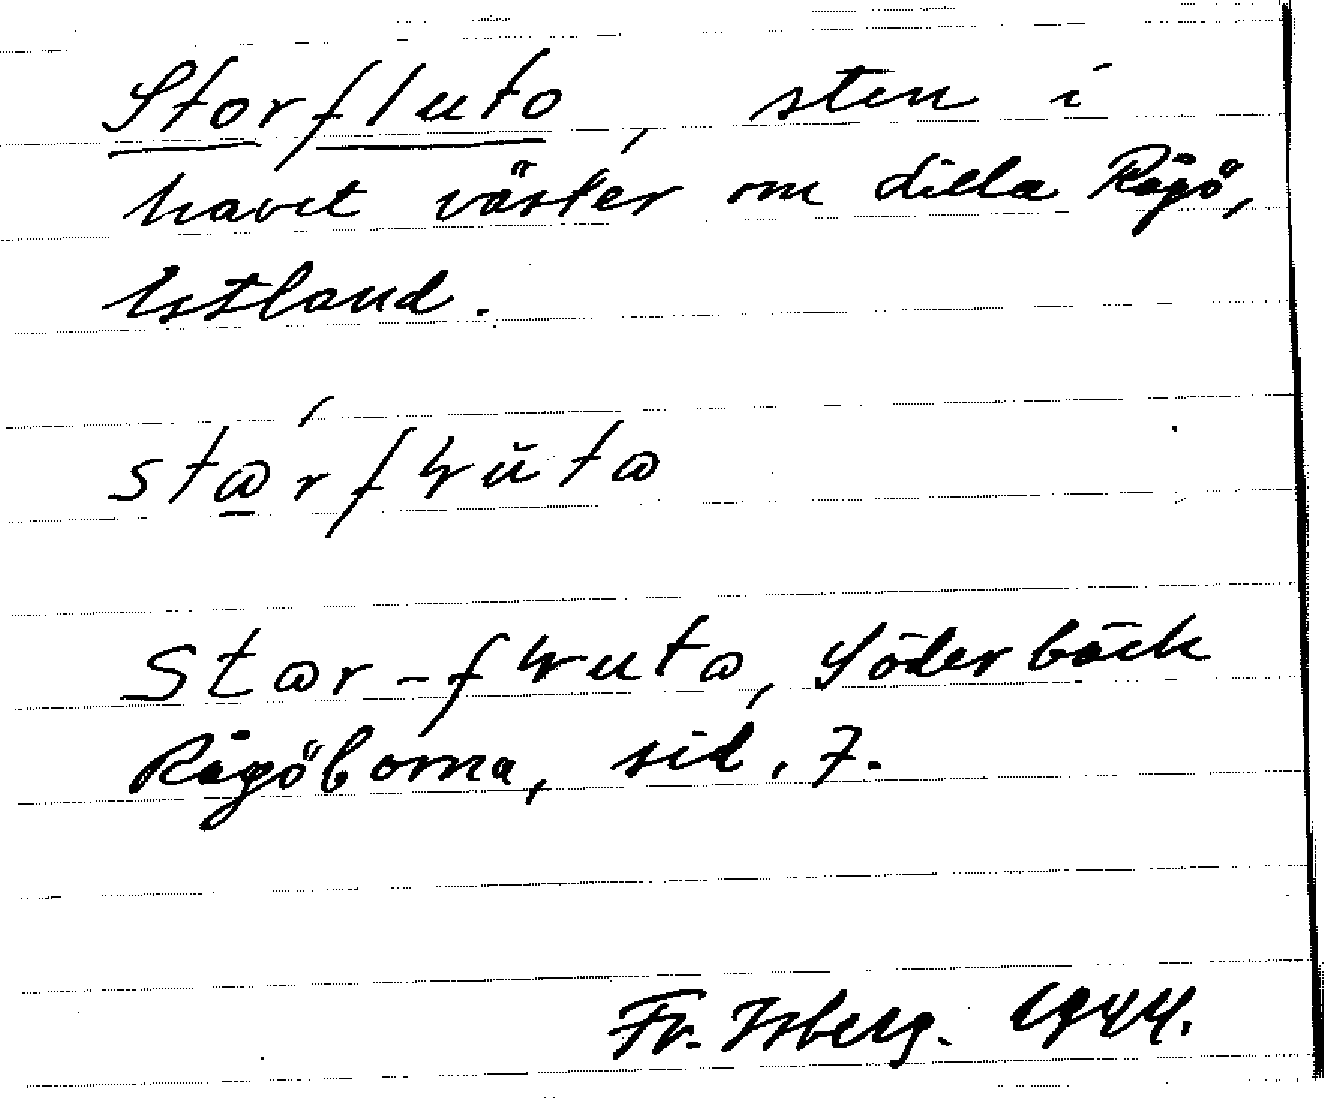 Storfluto, sten i
havet väster om Lilla Rågö,
Estland.
Söderbäck
Rågöborna, sid. 7.
Fr. Isberg. 1944.